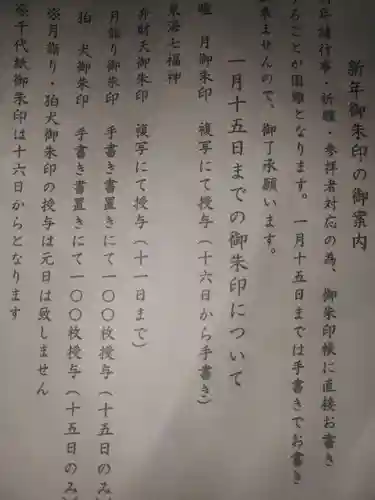 新年御朱印の御案内
年諸行事・祈願・参拝者対応の為、御朱印帳に直接お書き
することが困難となります。一月十五日までは手書きでお書き
来ませんので、御了承願います。
一月十五日までの御朱印について
月御朱印　複写にて授与(十六日から手書き)
東海七福神
弁財天御朱印　複写にて授与(十一日まで)
月詣り御朱印　手書き書置きにて一〇〇枚授与(十五日のみ
狛　犬御朱印　手書き書置きにて一〇〇枚授与(十五日のみ
※月詣り・狛犬御朱印の授与は元日は致しません
※千代紙御朱印は十六日からとなります